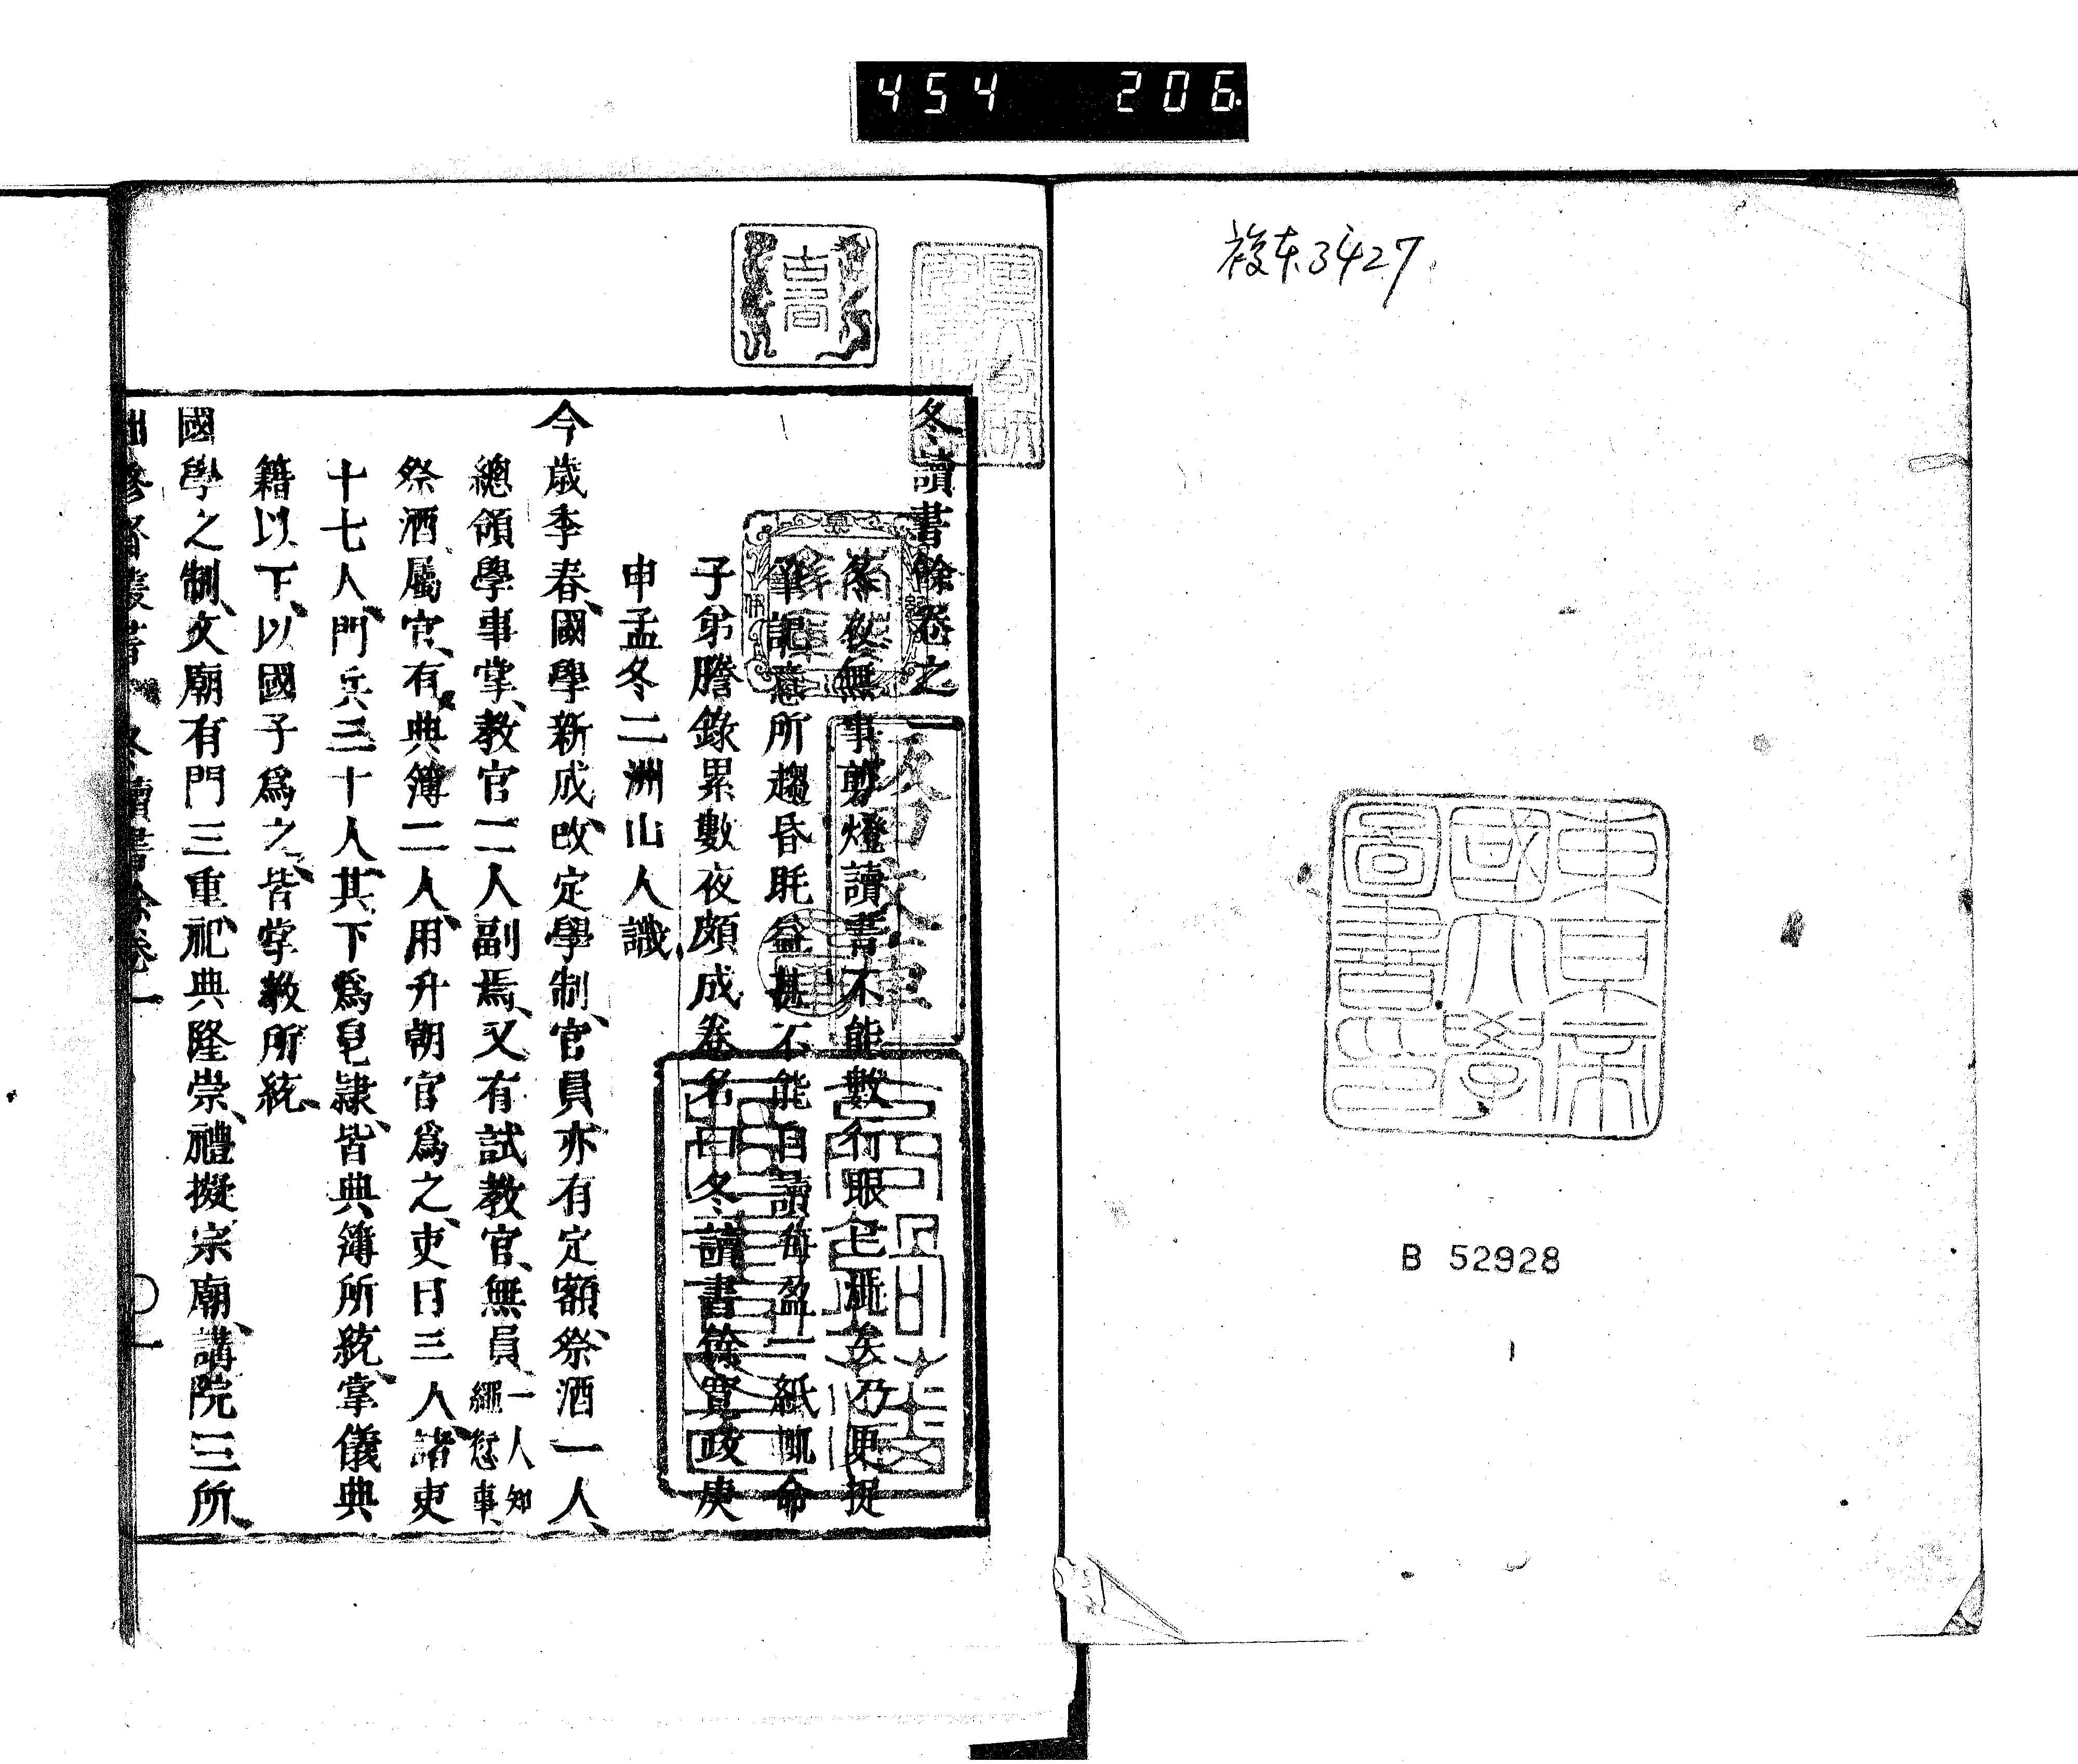 454 206
複本3427
東京帝
國大學
圖書印
B 52928
冬讀書餘卷之一
冬夜無事剪燈讀書不能數行眼已澁矣乃更捉
筆記意所趣昏眊益甚不能自讀每盈一紙輒命
子弟謄錄累數夜頗成卷名曰冬讀書餘寛政庚
申孟冬二洲山人識
今歲季春國學新成改定學制官員亦有定額祭酒一人
總領學事掌教官二人副焉又有試教官無員一人知
繩愆事
祭酒屬官有典簿二人用升朝官爲之吏目三人諸吏
十七人門兵三十人其下爲皂隷皆典簿所統掌儀典
籍以下以國子爲之皆掌教所統
國學之制文廟有門三重祀典隆崇禮擬宗廟講院三所
冬讀書餘卷一
〇一